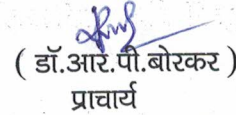 ( डॉ.आर.पी.बोरकर )
प्राचार्य